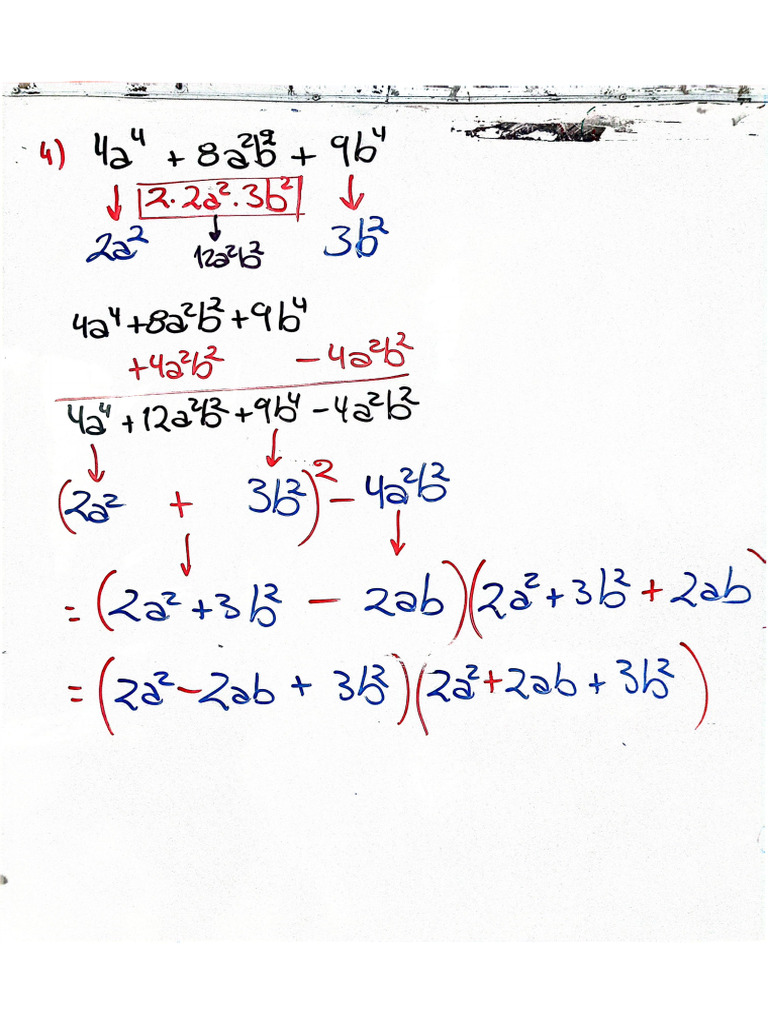 4) 4a⁴ + 8a²b² + 9b⁴
2·2a²·3b²
2a² 12a²b² 3b²
4a⁴+8a²b²+9b⁴
+4a²b² −4a²b²
4a⁴+12a²b²+9b⁴−4a²b²
(2a² + 3b²)²−4a²b²
=(2a²+3b² − 2ab)(2a²+3b²+2ab)
=(2a²−2ab+3b²)(2a²+2ab+3b²)